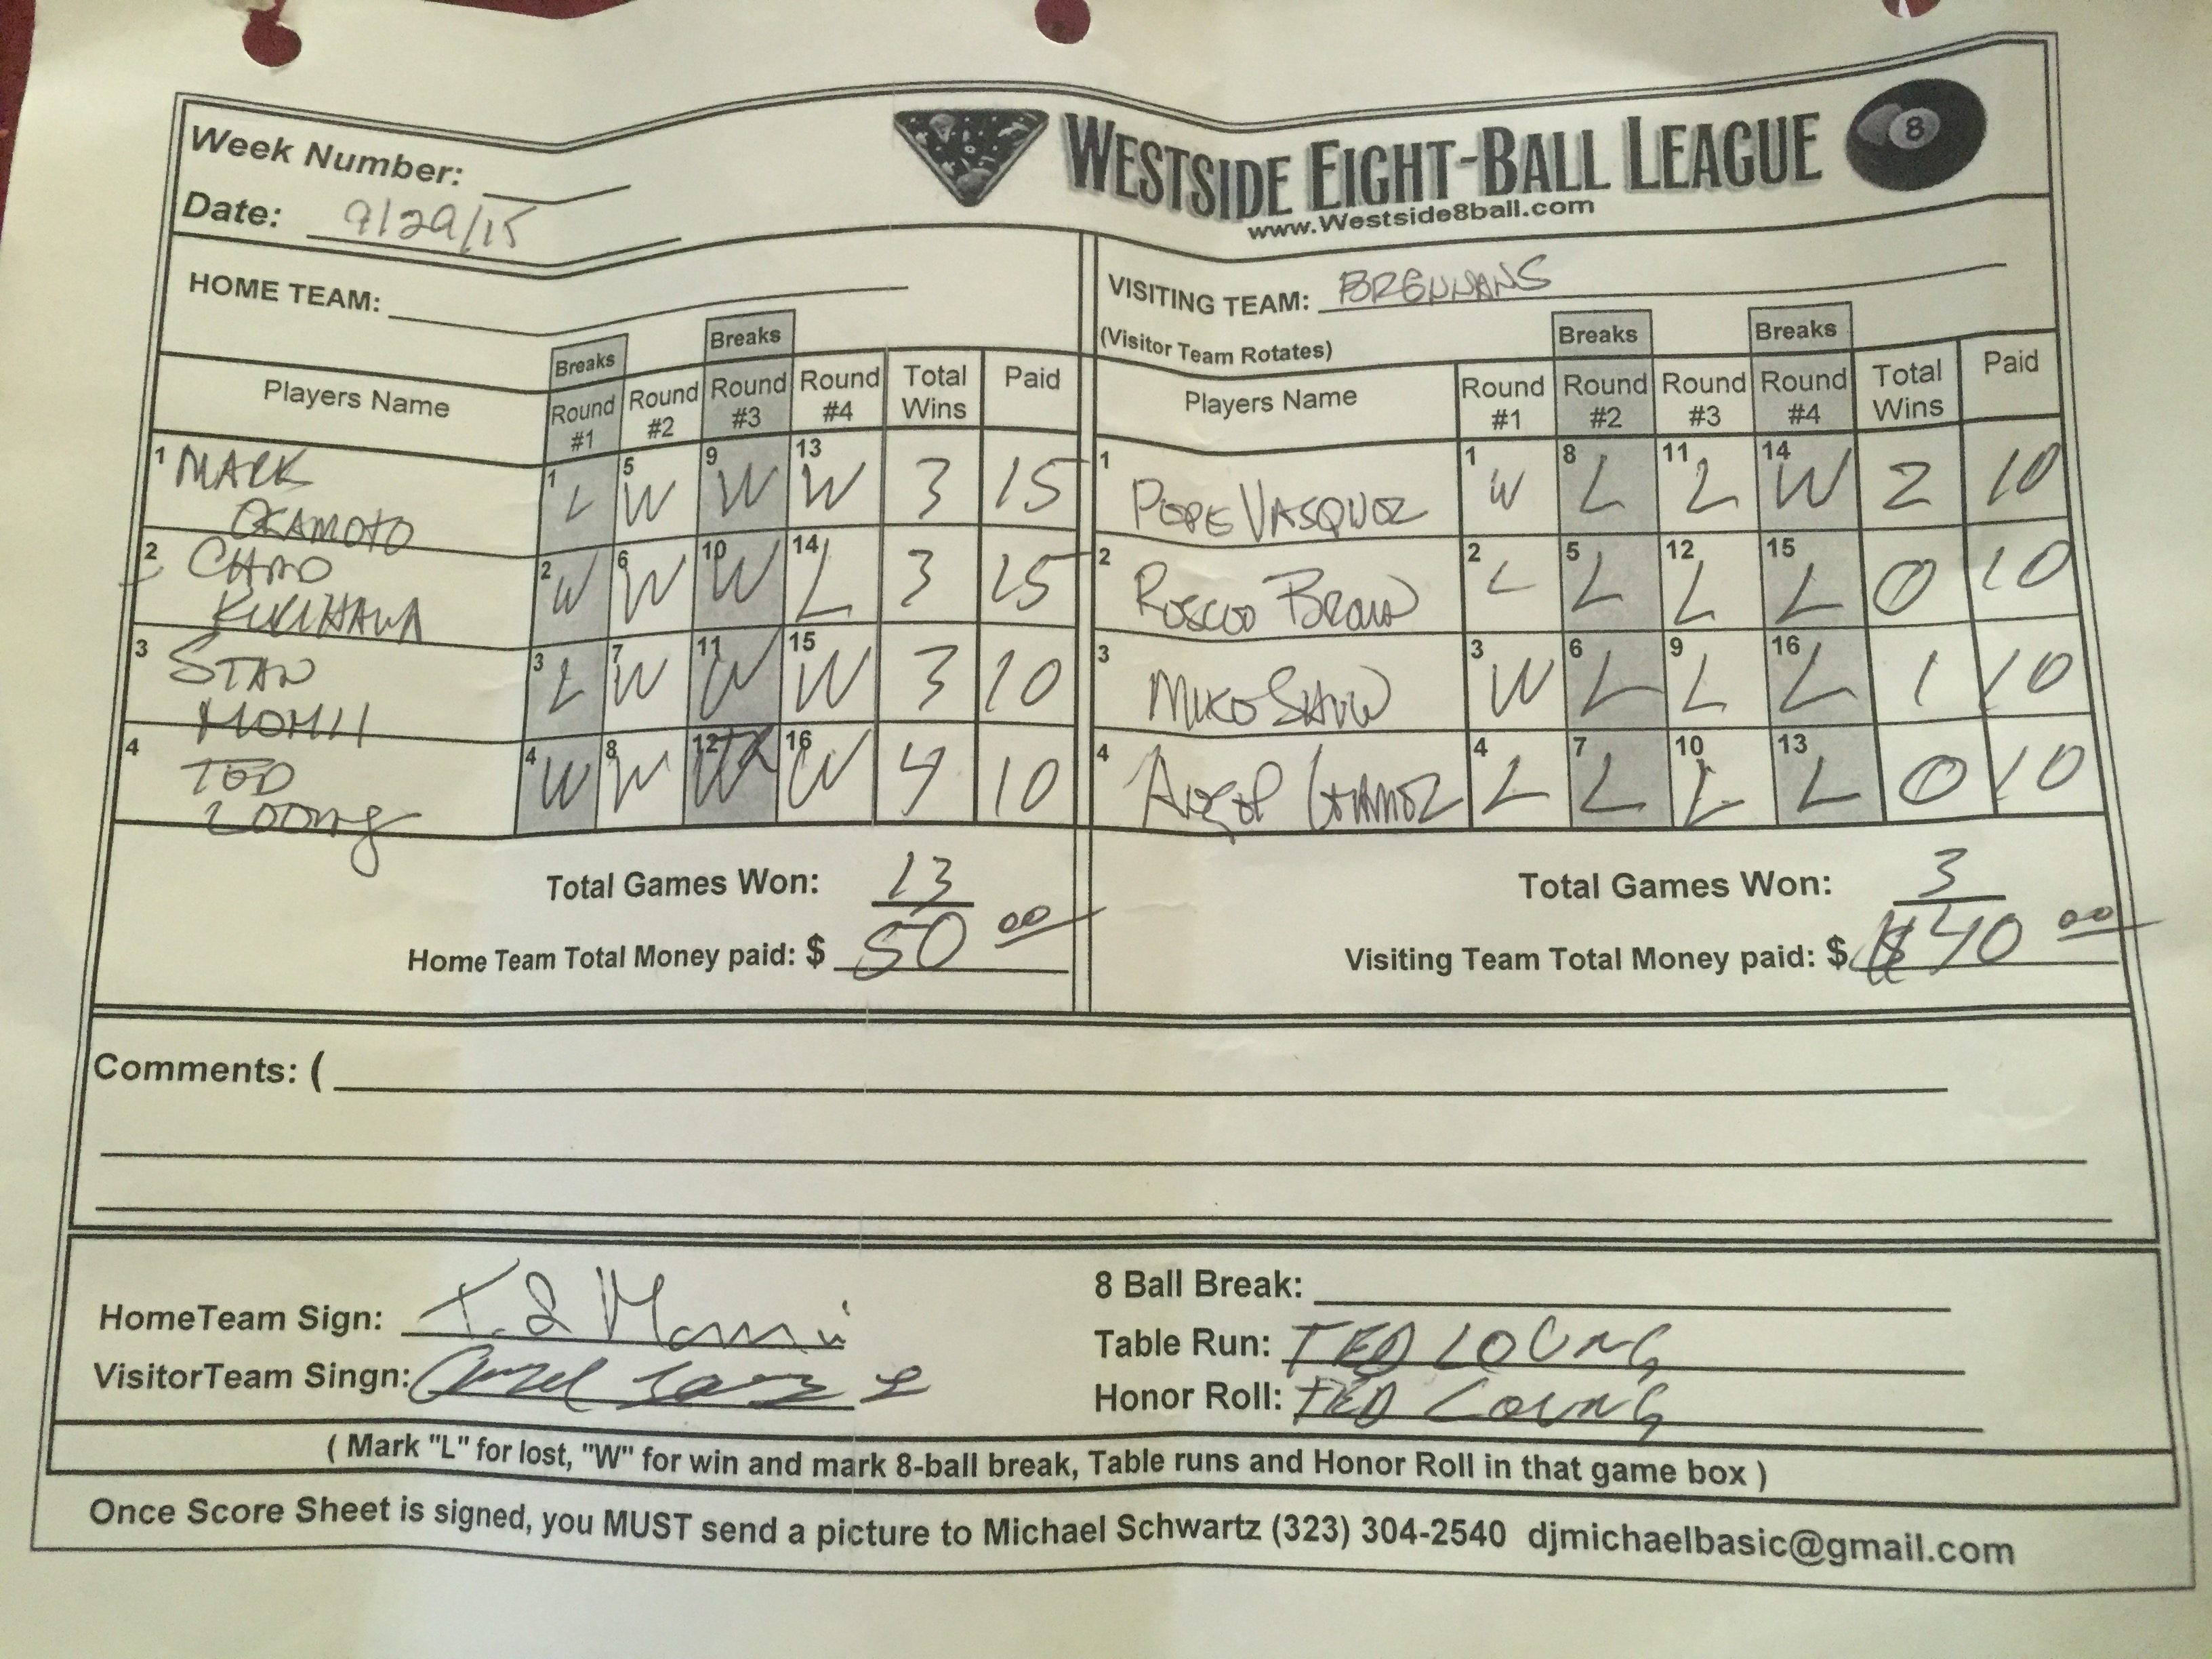 Week Number:
Date: 9/29/15
WESTSIDE EIGHT-BALL LEAGUE
www.Westside8ball.com
8
HOME TEAM:
VISITING TEAM: BRENNANS
(Visitor Team Rotates)
Breaks Breaks
Players Name Round #1 Round #2 Round #3 Round #4 Total Wins Paid
1 MARK OKAMOTO 1 L 5 W 9 W 13 W 3 15
2 CHAD 2 W 6 W 10 W 14 L 3 15
3 STAN 3 L 7 W 11 W 15 W 3 10
4 TED LOONG 4 W 8 W 12 W TR 16 W 4 10
Total Games Won: 13
Home Team Total Money paid: $ 50 00
Breaks Breaks
Players Name Round #1 Round #2 Round #3 Round #4 Total Wins Paid
1 PEPE VASQUEZ 1 W 8 L 11 L 14 W 2 10
2 ROSCOE BROWN 2 L 5 L 12 L 15 L 0 10
3 MIKE SHAW 3 W 6 L 9 L 16 L 1 10
4 ANGEL 4 L 7 L 10 L 13 L 0 10
Total Games Won: 3
Visiting Team Total Money paid: $ $40 00
Comments: (
HomeTeam Sign:
VisitorTeam Singn:
8 Ball Break:
Table Run: TED LOUNG
Honor Roll: TED LOUNG
( Mark "L" for lost, "W" for win and mark 8-ball break, Table runs and Honor Roll in that game box )
Once Score Sheet is signed, you MUST send a picture to Michael Schwartz (323) 304-2540 djmichaelbasic@gmail.com